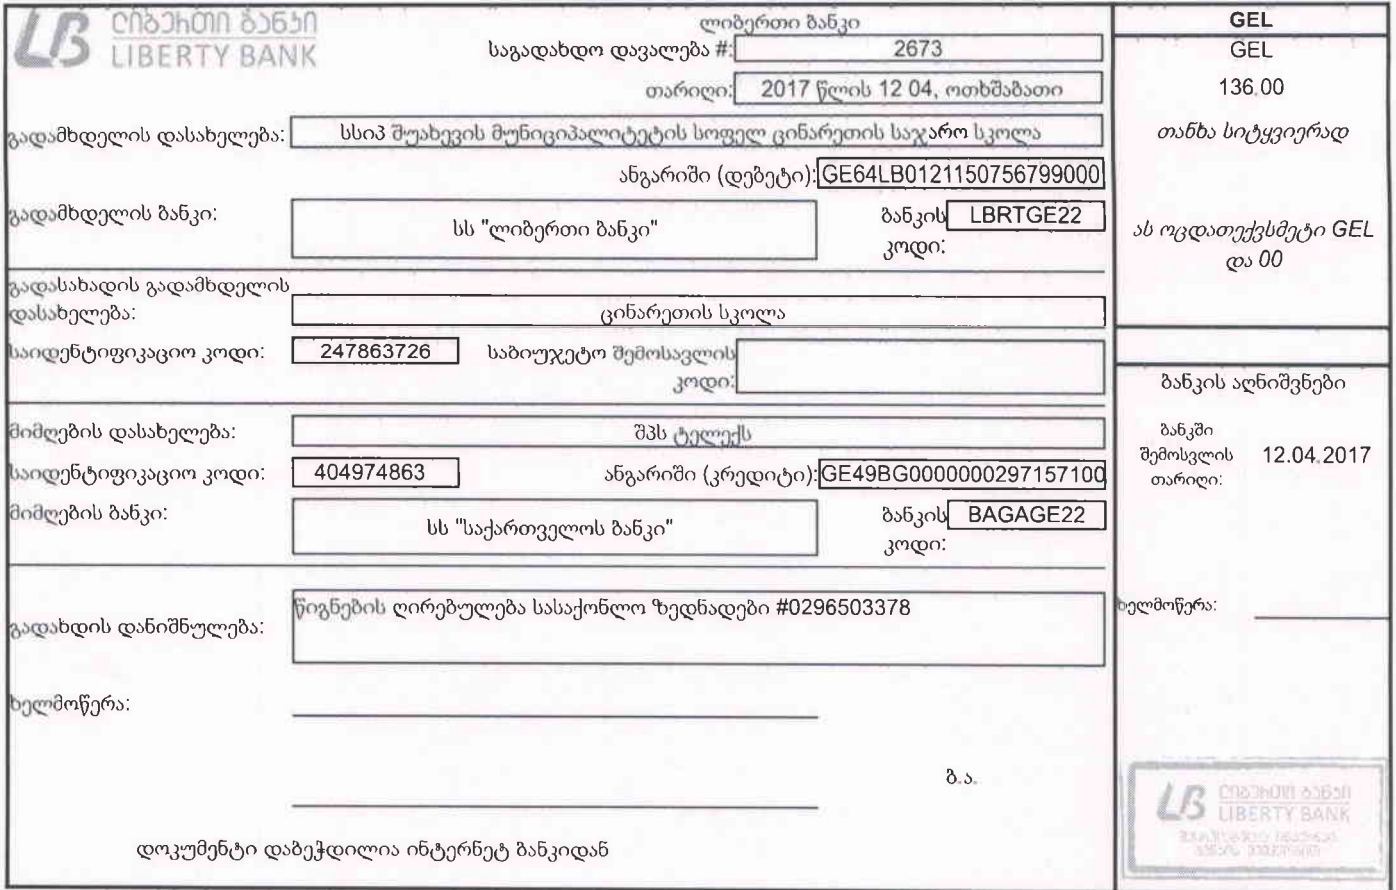 ლიბერთი ბანკი
LIBERTY BANK
ლიბერთი ბანკი
საგადახდო დავალება #: 2673
თარიღი: 2017 წლის 12 04, ოთხშაბათი
გადამხდელის დასახელება: სსიპ შუახევის მუნიციპალიტეტის სოფელ ცინარეთის საჯარო სკოლა
ანგარიში (დებეტი): GE64LB0121150756799000
გადამხდელის ბანკი: სს "ლიბერთი ბანკი" ბანკის კოდი: LBRTGE22
გადასახადის გადამხდელის
დასახელება: ცინარეთის სკოლა
საიდენტიფიკაციო კოდი: 247863726 საბიუჯეტო შემოსავლის
კოდი:
მიმღების დასახელება: შპს ტელექს
საიდენტიფიკაციო კოდი: 404974863 ანგარიში (კრედიტი): GE49BG0000000297157100
მიმღების ბანკი: სს "საქართველოს ბანკი" ბანკის კოდი: BAGAGE22
გადახდის დანიშნულება: წიგნების ღირებულება სასაქონლო ზედნადები #0296503378
ხელმოწერა:
ბ.ა.
დოკუმენტი დაბეჭდილია ინტერნეტ ბანკიდან
GEL
GEL
136.00
თანხა სიტყვიერად
ას ოცდათექვსმეტი GEL
და 00
ბანკის აღნიშვნები
ბანკში
შემოსვლის 12.04.2017
თარიღი:
ხელმოწერა:
ლიბერთი ბანკი
LIBERTY BANK